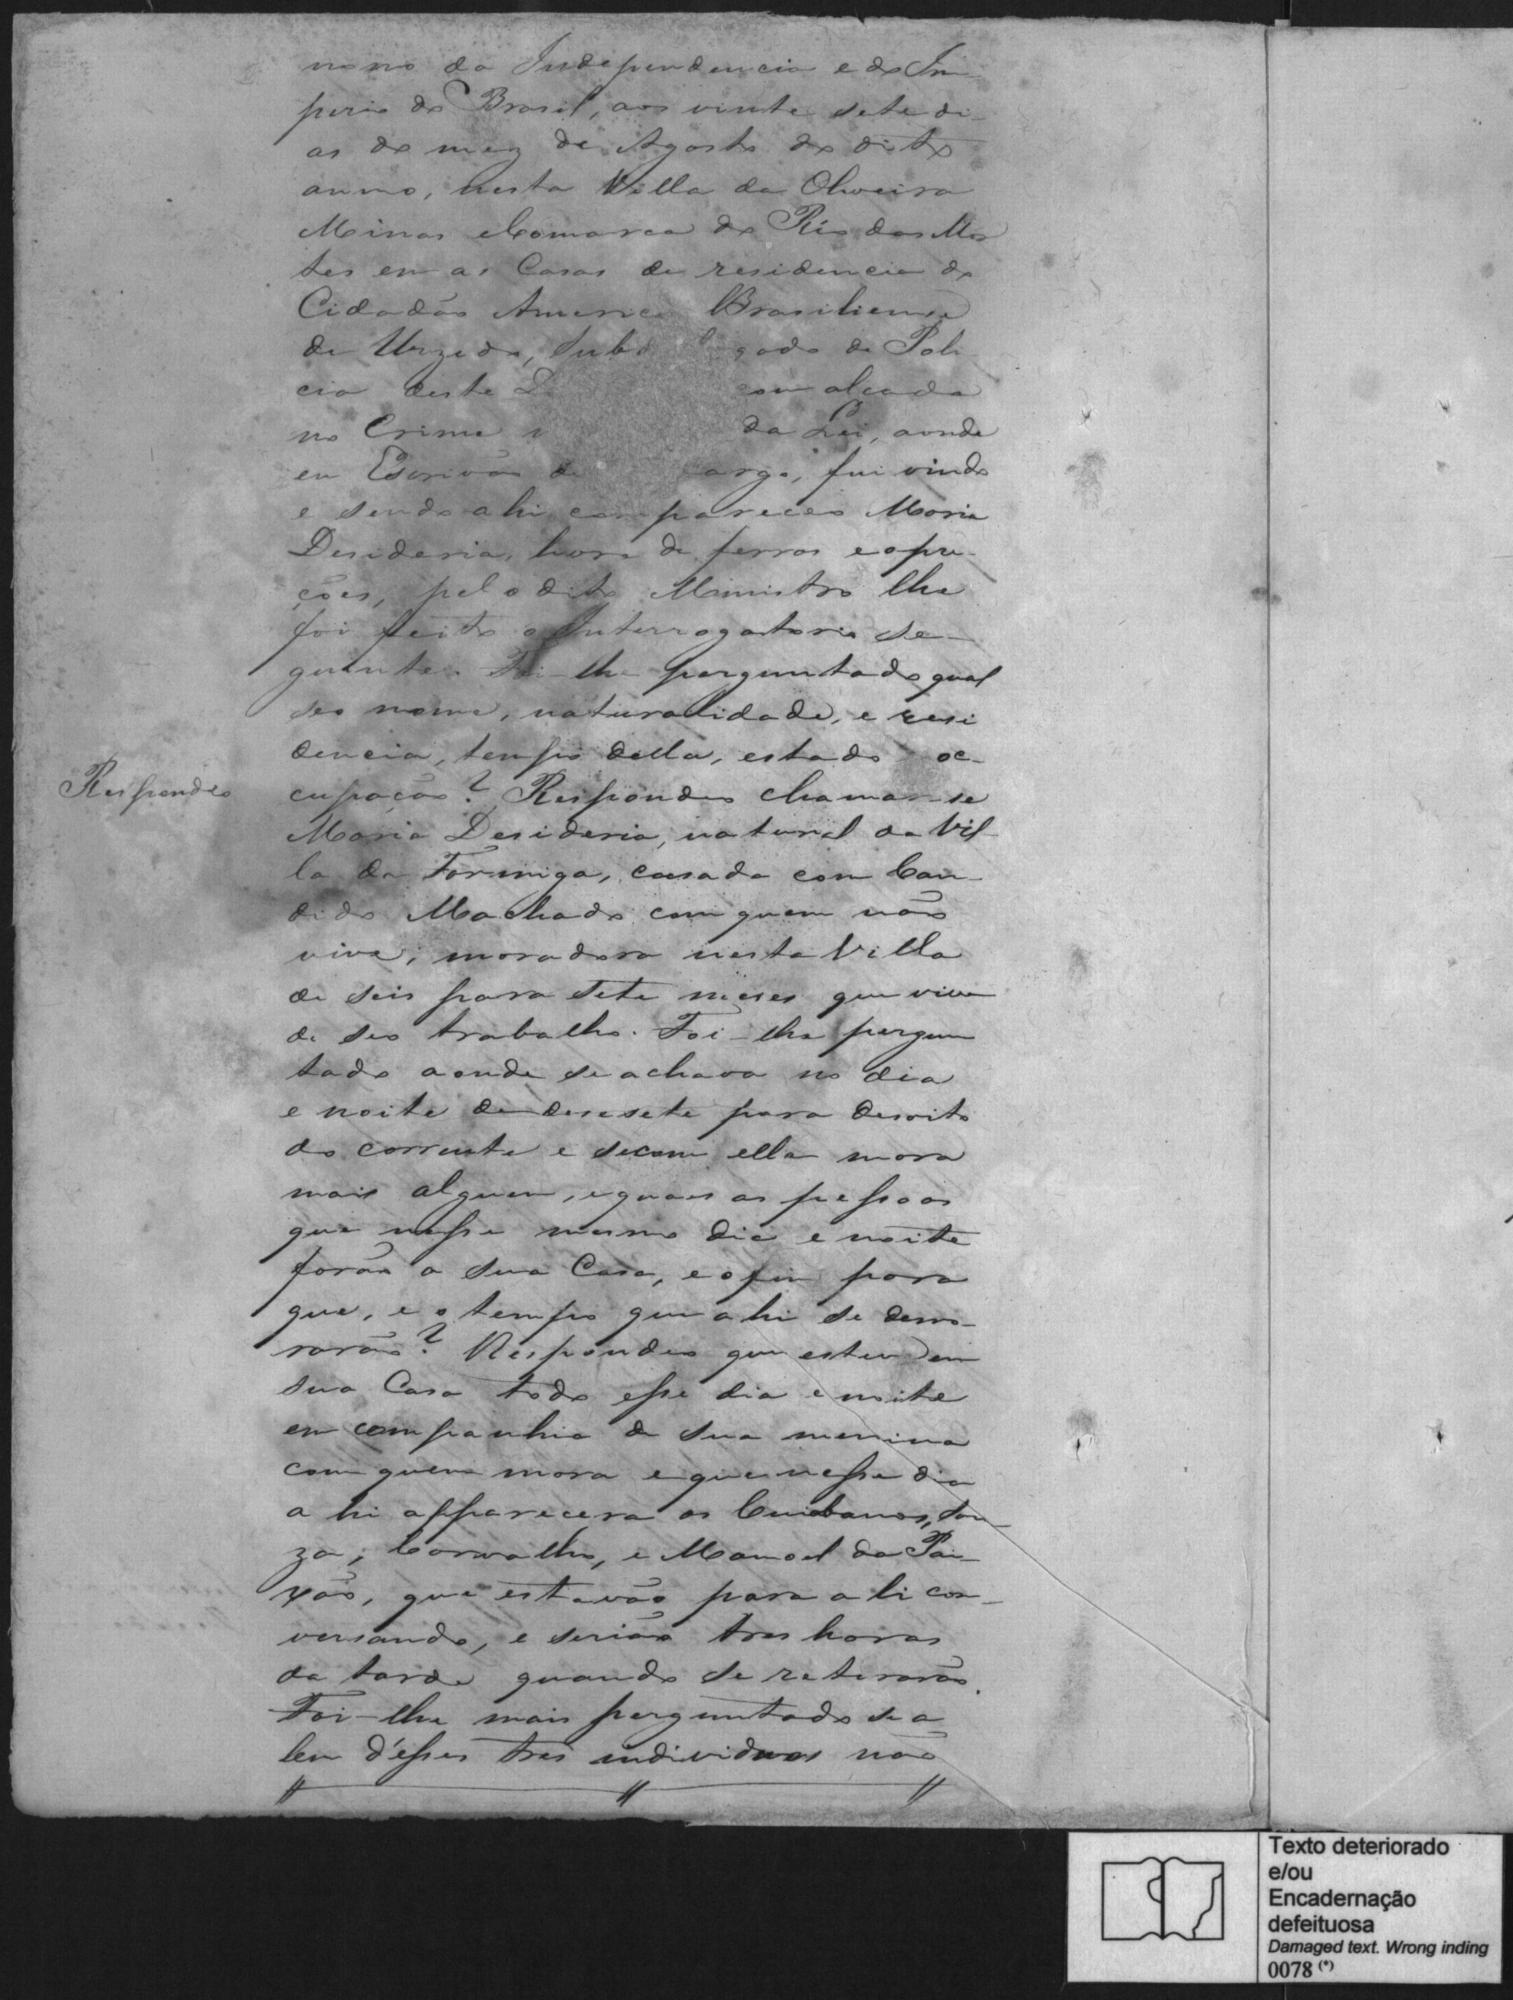 nono da Independencia e do Im-
perio do Brasil, aos vinte sete di-
as do mez de Agosto do dito
anno, nesta Villa da Oliveira
Minas e Comarca do Rio das Mor
tes em as Casas de residencia do
Cidadão Americ Brasiliense
de Urzedo, Subd gado de Poli-
cia deste D com alçada
no Crime da Lei, aonde
eu Escrivão de argo, fui vindo
e sendo ahi compareceo Maria
Desideria, livre de ferros e opre-
ções, pelo dito Ministro lhe
foi feito o Interrogatorio se-
guinte. Foi-lhe perguntado qual
seo nome, naturalidade, e resi
dencia, tempo della, estado oc-
cupação? Respondeo chamar-se
Respondeo
Maria Desideria, natural da Vil-
la da Formiga, casada com Can-
dido Machado com quem não
vive; moradora nesta Villa
de seis para sete meses que vive
de seo trabalho. Foi-lhe pergun
tado aonde se achava no dia
e noite de desesete para desoito
do corrente e se com ella mora
mais alguem, e quaes as pessoas
que nesse mesmo dia e noite
forão a sua Casa, e o fim para
que, e o tempo que ahi se demo-
rarão? Respondeo que esteve em
sua Casa todo esse dia e noite
em companhia de sua menina
com quem mora e que nesse dia
ahi apparecera os Sou-
za, Carvalho, e Manoel da Pai-
xão, que estavão para ali con-
versando, e serião tres horas
da tarde quando se retirarão.
Foi-lhe mais perguntado se a-
lem d'esses tres individuos não